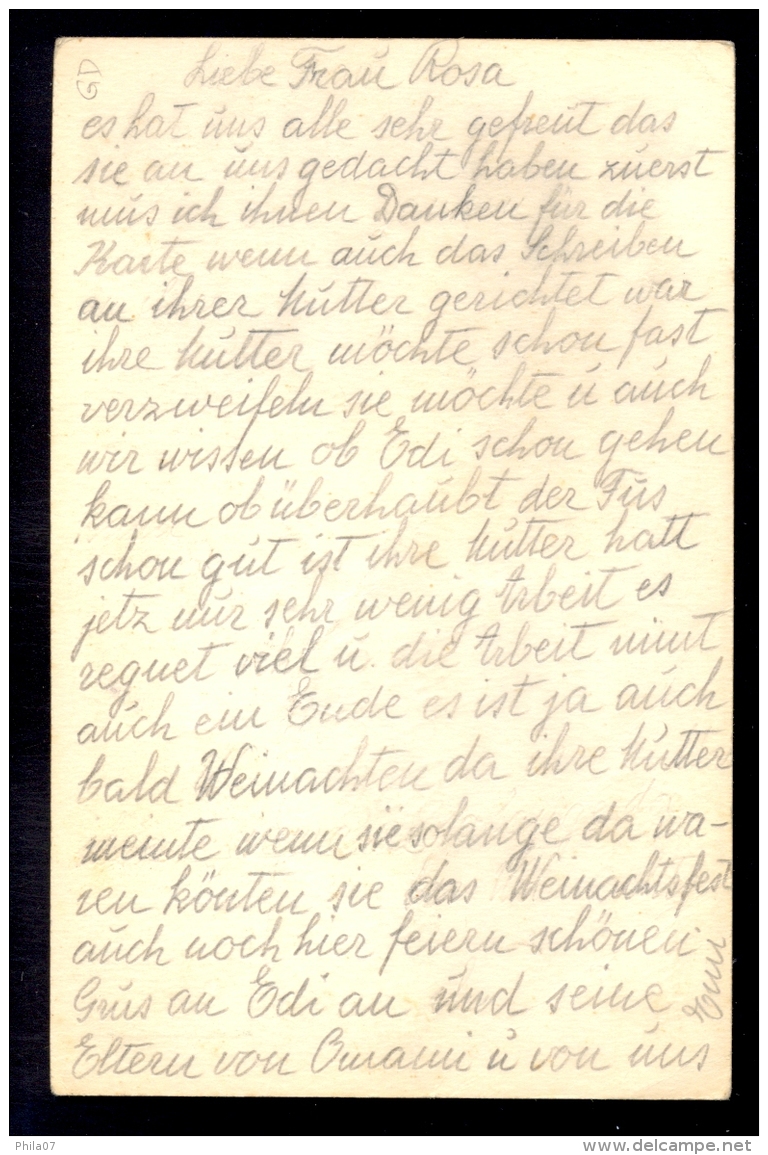 Liebe Frau Rosa
es hat uns alle sehr gefreut das
sie an uns gedacht haben zuerst
mus ich ihnen Danken für die
Karte wenn auch das Schreiben
an ihrer Mutter gerichtet war
ihre Mutter möchte schon fast
verzweifeln sie möchte u auch
wir wissen ob Edi schon gehen
kann ob überhaubt der Fus
schon gut ist ihre Mutter hatt
jetz nur sehr wenig Arbeit es
regnet viel u. die Arbeit nimt
auch ein Ende es ist ja auch
bald Weinachten da ihre Mutter
meinte wenn sie solange da wa-
ren könten sie das Weinachtsfest
auch noch hier feiern schönen
Grus an Edi an und seine
Eltern von Omami u von uns
Phila07
www.delcampe.net